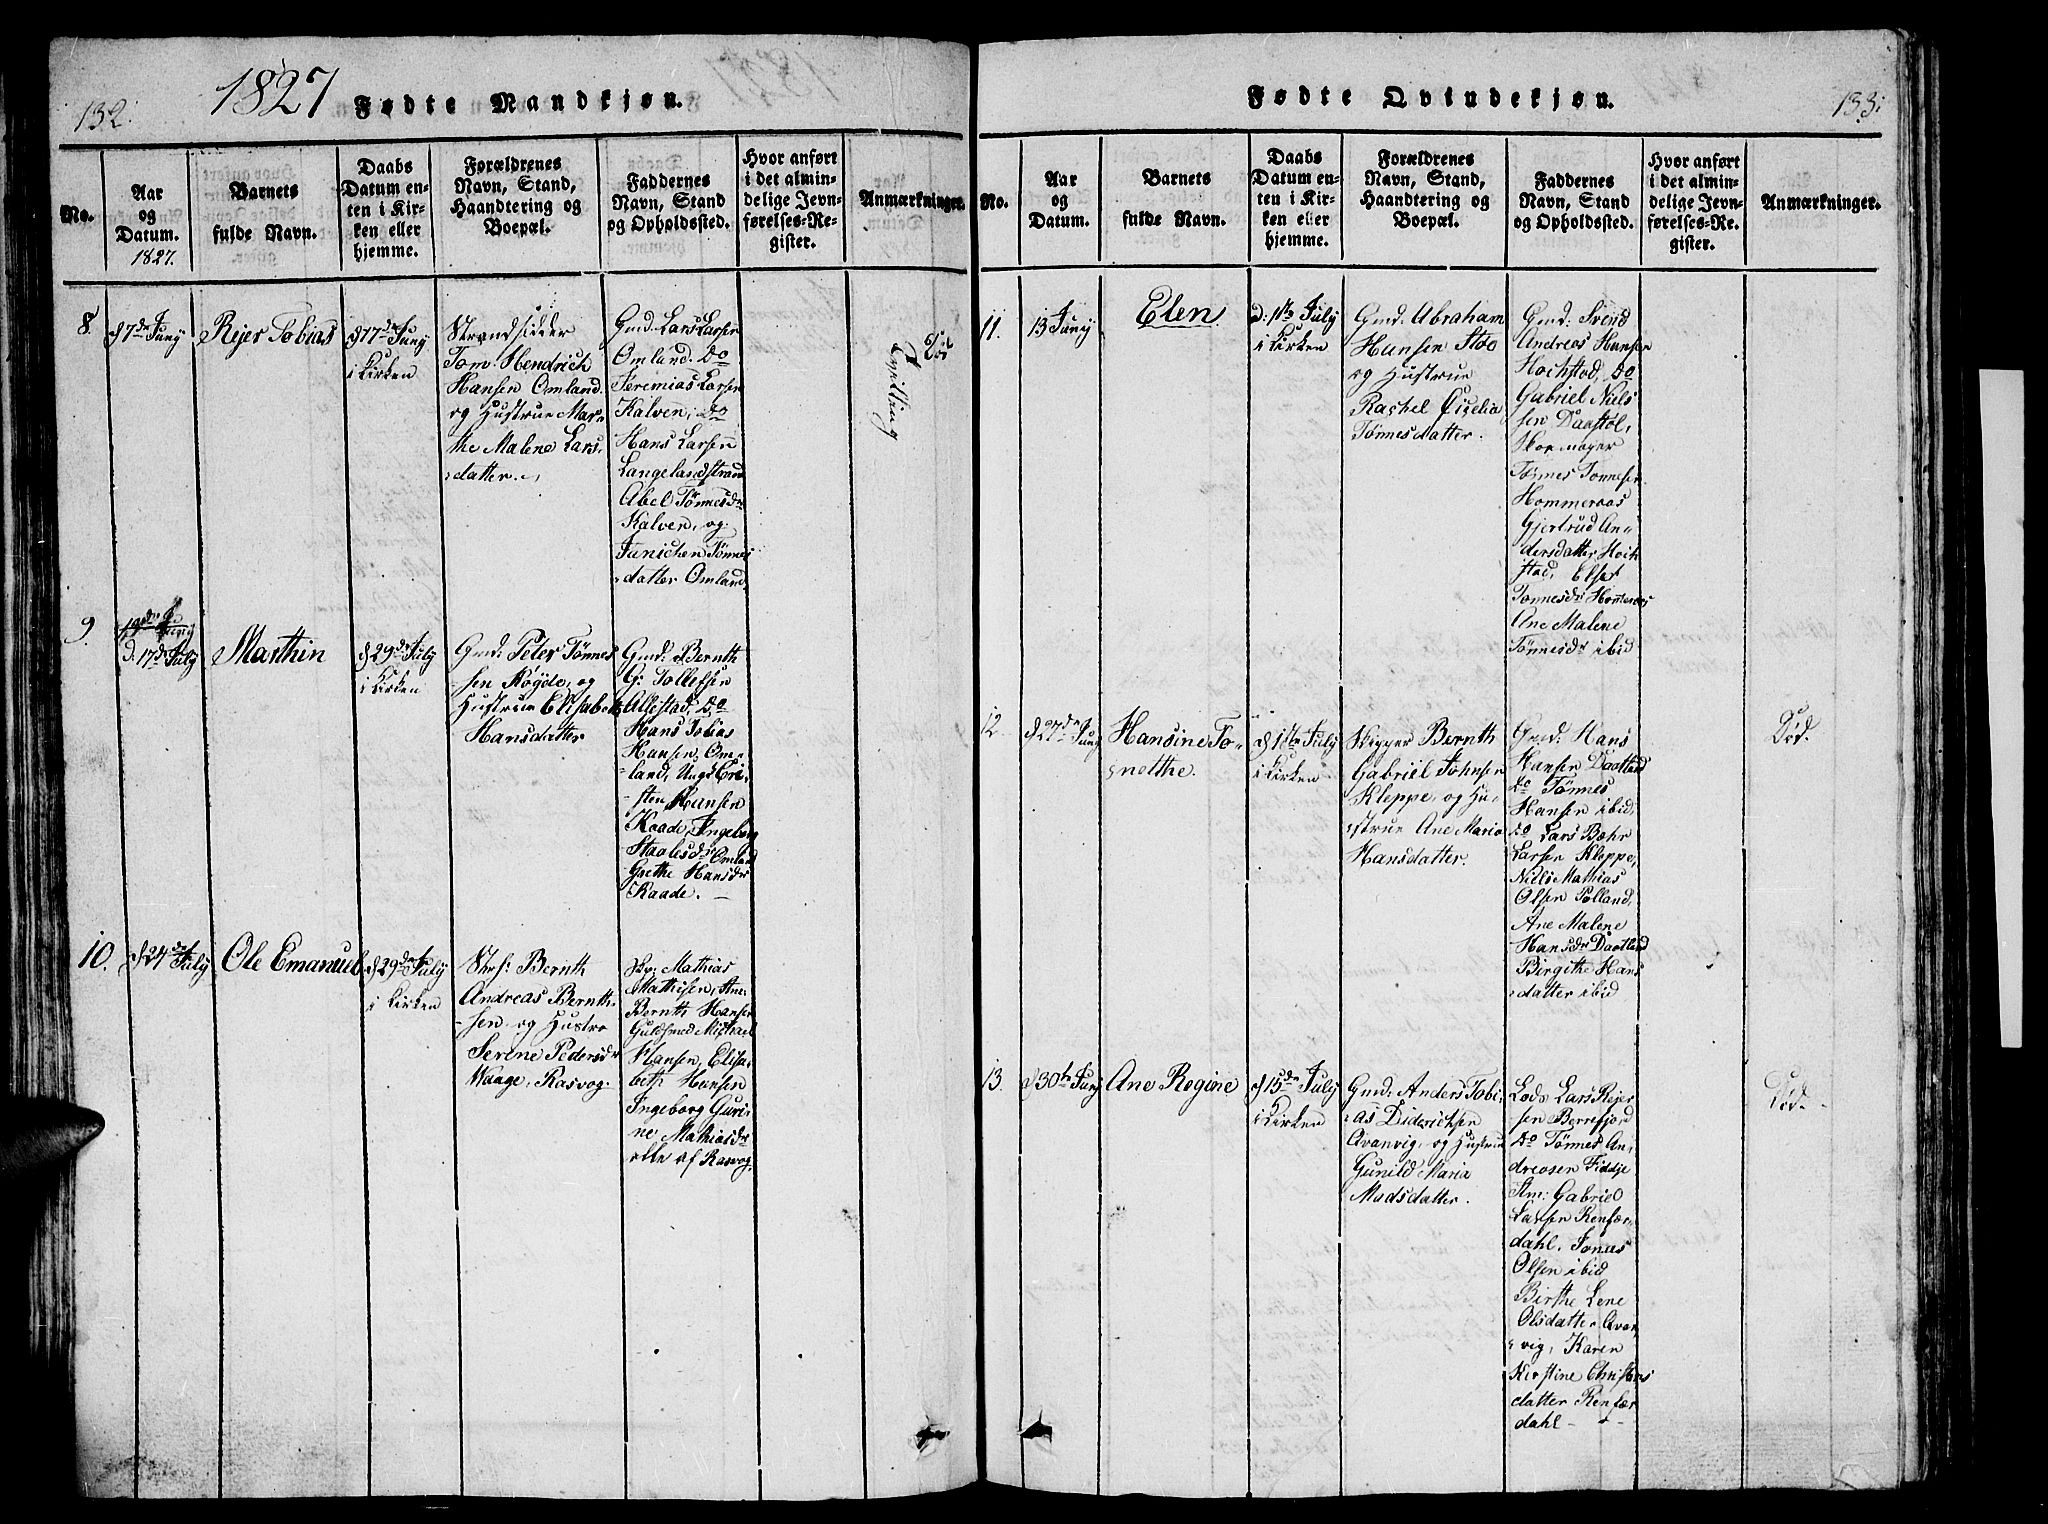 132.
1827
Fødte Mandkjøn.
No.
Aar
og
Datum.
1827.
Barnets
fulde Navn.
Daabs
Datum en-
ten i Kir-
ken eller
hjemme.
Forældrenes
Navn, Stand,
Haandtering og
Boepæl.
Faddernes
Navn, Stand
og Opholdssted.
Hvor anført
i det almin-
delige Jevn-
førelses-Re-
gister.
Anmærkninger.
8
d 7de Junij
Rejer Tobias
d 17de Junij
i Kirken
Strandsidder
Tom Hendrich
Hansen Omland
og Hustrue Mar-
the Malene Lars-
datter.
Gmd: Lars Larsen
Omland. Do
Jeremias Larsen
Kalven, Do
Hans Larsen
Langelandstrand
Abel Tønnesdr
Kalven, og
Junichen Tønnes
datter Omland
Tvilling
Død
9.
d. 17de July
Marthin
d 29de July
i Kirken
Gmd: Peter Tønnes
sen Røyde, og
Hustrue Elisabeth
Hansdatter
Gmd: Bernth
G: Tollefsen
Allestad, Do
Hans Tobias
Hansen, Om-
land, Ungk Cri-
sten Hansen
Kaade, Ingeborg
Staalesdr Omland
Grethe Hansdr
Kaade. —
10.
d 24de July
Ole Emanuel
d 29de July
i Kirken
Strs: Bernth
Andreas Bernth-
sen og Hustro
Serine Pedersdr
Waage, Rasvog
Mathias
Mathisen,
Bernth Hansen
Guldsmed Michael
Hansen, Elisa-
beth Hansen
Ingeborg Guri-
ne Mathiasdr
alle af Rasvog
Fødte Qvindekjøn.
133.
No.
Aar
og
Datum.
Barnets
fulde Navn.
Daabs
Datum en-
ten i Kir-
ken eller
hjemme.
Forældrenes
Navn, Stand,
Haandtering og
Boepæl.
Faddernes
Navn, Stand
og Opholdssted.
Hvor anført
i det almin-
delige Jevn-
førelses-Re-
gister.
Anmærkninger.
11.
13 Junij
Elen
d: 1ste July
i Kirken
Gmd: Abraham
Hansen Stoo
og Hustrue
Rachel Cicelia
Tønnesdatter.
Gmd: Svend
Andreas Hansen
Hochstad, Do
Gabriel Niels
sen Daastøl,
Skomager
Tønnes Tønnesen
Hommeraas
Gjertrud An-
dersdatter Hoch
stad, Else
Tønnesdr Hommeraas
Ane Malene
Tønnesdr ibid
12.
d 27de Junij
Hansine To-
nethe.
d 1ste July
i Kirken
Skipper Bernth
Gabriel Johnsen
Kleppe, og Hu-
strue Ane Maria
Hansdatter.
Gmd: Hans
Hansen Daatland
Do Tønnes
Hansen ibid,
Do Lars Bæhr
Larsen Kleppe,
Niels Mathias
Olsen Tolland,
Ane Malene
Hansdr Daatland
Birgithe Hans
datter ibid
Død.
13.
d 30te Junij
Ane Regine
d 15de July
i Kirken
Gmd: Anders Tobi-
as Diderichsen
Qvanvig, og Hustrue
Gunild Maria
Madsdatter.
Lods Lars Rejer
sen Berrefjord
Do Tønnes An-
dreasen Fidsje
Gabriel
Larsen Renfær-
dahl, Jonas
Olsen ibid
Birthe Lene
Olsdatter Qvan
vig, Karen
Kirstine Christens
datter Renfær
dahl —
Død.